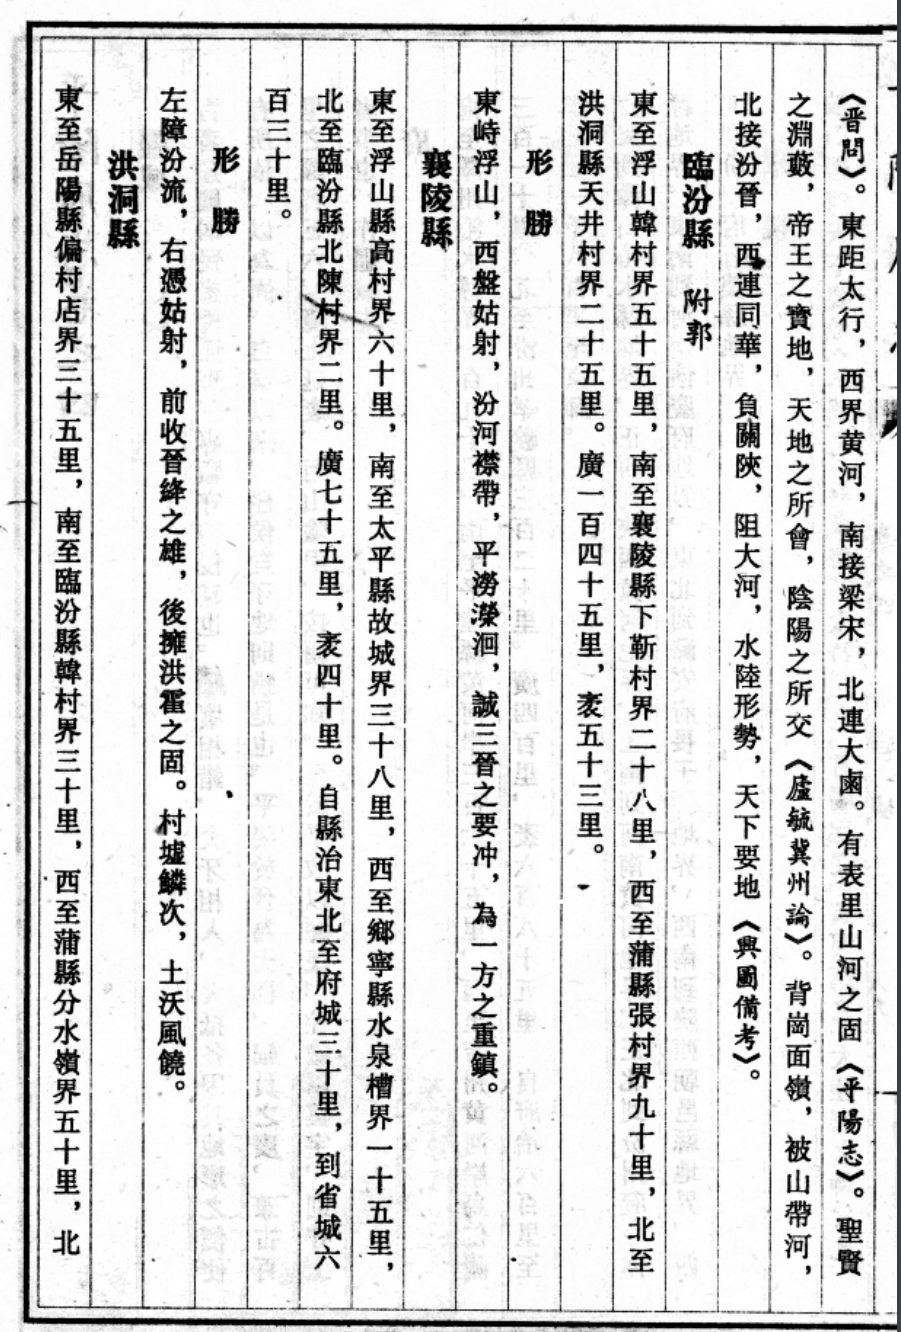 《晉問》。東距太行，西界黄河，南接梁宋，北連大鹵。有表里山河之固《平陽志》。聖賢
之淵藪，帝王之寶地，天地之所會，陰陽之所交《廬毓冀州論》。背崗面嶺，被山帶河，
北接汾晉，西連同華，負關陝，阻大河，水陸形勢，天下要地《輿圖備考》。
臨汾縣 附郭
東至浮山韓村界五十五里，南至襄陵縣下靳村界二十八里，西至蒲縣張村界九十里，北至
洪洞縣天井村界二十五里。廣一百四十五里，袤五十三里。
形勝
東峙浮山，西盤姑射，汾河襟帶，平澇濴洄，誠三晉之要冲，為一方之重鎮。
襄陵縣
東至浮山縣高村界六十里，南至太平縣故城界三十八里，西至鄉寧縣水泉槽界一十五里，
北至臨汾縣北陳村界二里。廣七十五里，袤四十里。自縣治東北至府城三十里，到省城六
百三十里。
形勝
左障汾流，右憑姑射，前收晉絳之雄，後擁洪霍之固。村墟鱗次，土沃風饒。
洪洞縣
東至岳陽縣偏村店界三十五里，南至臨汾縣韓村界三十里，西至蒲縣分水嶺界五十里，北